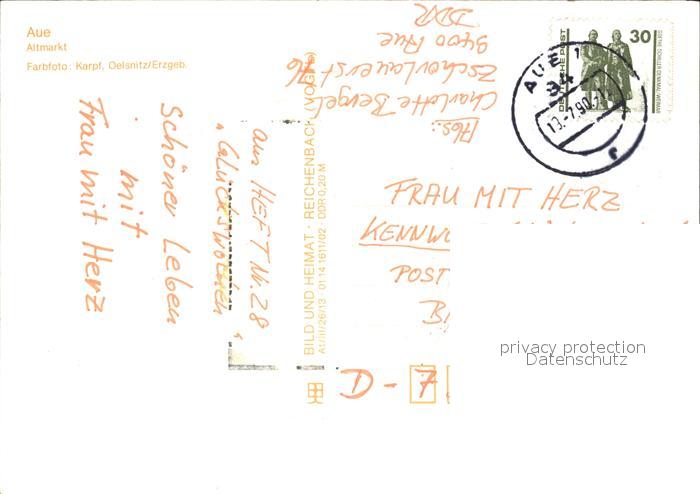 Aue
Altmarkt
Farbfoto: Karpf, Oelsnitz/Erzgeb.
Schöner Leben
mit
Frau mit Herz
aus HEFT Nr. 28
"Glückswochen"
BILD UND HEIMAT · REICHENBACH (VOGTL)
A1/III/26/13 01 14 1611/02 DDR 0,20 M
Abs.:
Charlotte Bergel
Zschorlauerst 76
9400 Aue
DDR
DEUTSCHE POST
30
GOETHE-SCHILLER-DENKMAL, WEIMAR
AUE 1
FRAU MIT HERZ
KENNW
POST
D - 7
privacy protection
Datenschutz